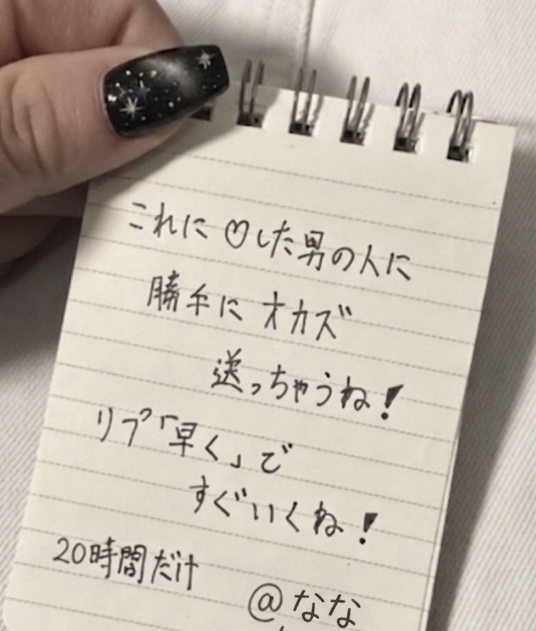 これに♡した男の人に
勝手にオカズ
送っちゃうね!
リプ「早く」で
すぐいくね!
20時間だけ
@なな